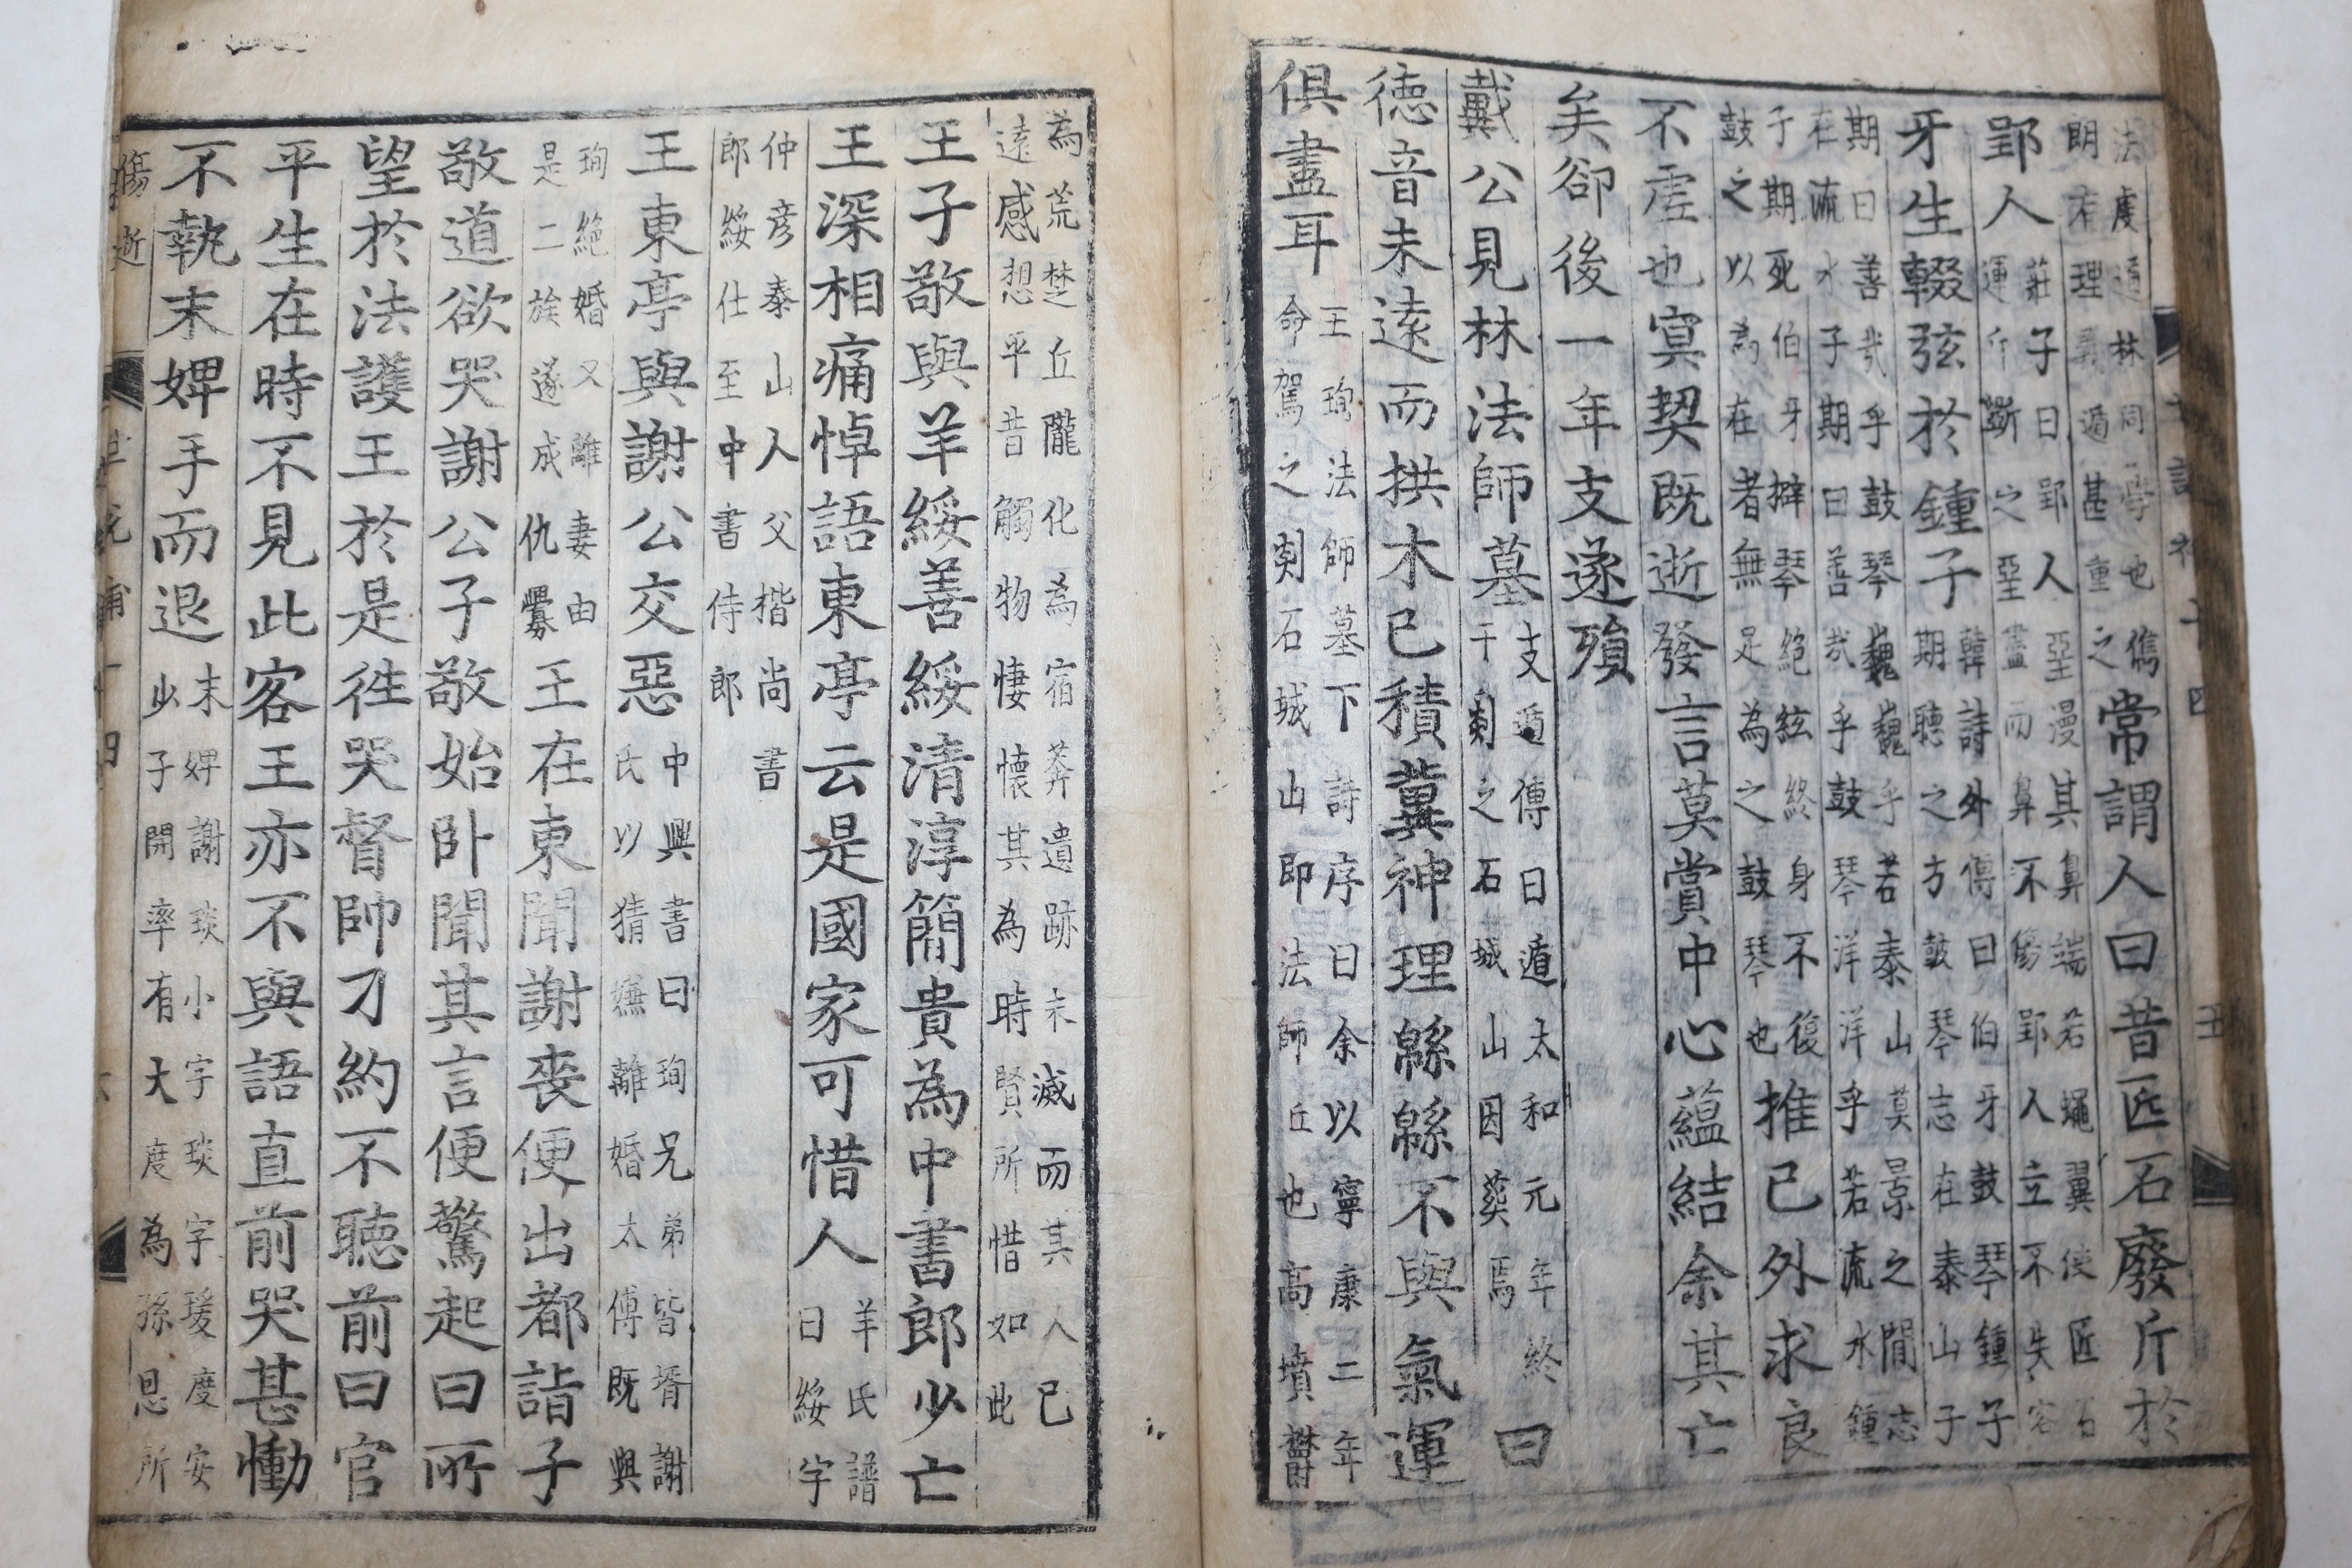 法虔道林同學也儁朗有理義遁甚重之常謂人曰昔匠石廢斤於
郢人莊子曰郢人堊漫其鼻端若蠅翼使匠石運斤斲之堊盡而鼻不傷郢人立不失容
牙生輟弦於鍾子韓詩外傳曰伯牙鼓琴鍾子期聽之方鼓琴志在泰山子
期曰善哉乎鼓琴巍巍乎若泰山莫景之間志在流水子期曰善哉乎鼓琴洋洋乎若流水鍾
子期死伯牙擗琴絶絃終身不復鼓之以為在者無足為之鼓琴也推已外求良
不虛也冥契既逝發言莫賞中心蘊結余其亡
矣卻後一年支遂殞
戴公見林法師墓支遁傳曰遁太和元年終于剡之石城山因葬焉曰
德音未遠而拱木已積冀神理緜緜不與氣運
俱盡耳王珣法師墓下詩序曰余以寧康二年命駕之剡石城山即法師丘也高墳鬱
為荒楚丘隴化為宿莽遺跡未滅而其人已遠感想平昔觸物悽懷其為時賢所惜如此
王子敬與羊綏善綏清淳簡貴為中書郎少亡
王深相痛悼語東亭云是國家可惜人羊氏譜曰綏字
仲彦泰山人父楷尚書郎綏仕至中書侍郎
王東亭與謝公交惡中興書曰珣兄弟皆壻謝氏以猜嫌離婚太傅既與
珣絶婚又離妻由是二族遂成仇釁王在東聞謝喪便出都詣子
敬道欲哭謝公子敬始卧聞其言便驚起曰所
望於法護王於是徃哭督帥刁約不聽前曰官
平生在時不見此客王亦不與語直前哭甚慟
不執末婢手而退末婢謝琰小字琰字瑗度安少子開率有大度為孫恩所
傷逝